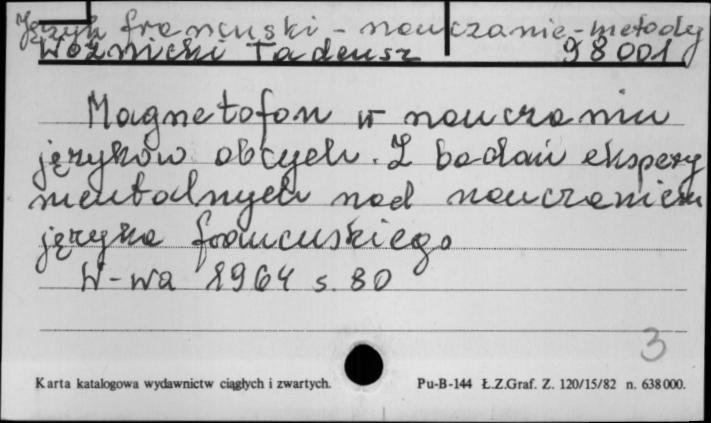 Język francuski - nauczanie - metody
Woźnicki Tadeusz 98001
Magnetofon w nauczaniu
języków obcych. Z badań ekspery
mentalnych nad nauczaniem
języka francuskiego
W-wa 1964 s. 80
3
Karta katalogowa wydawnictw ciągłych i zwartych. Pu-B-144 Ł.Z.Graf. Z. 120/15/82 n. 638000.